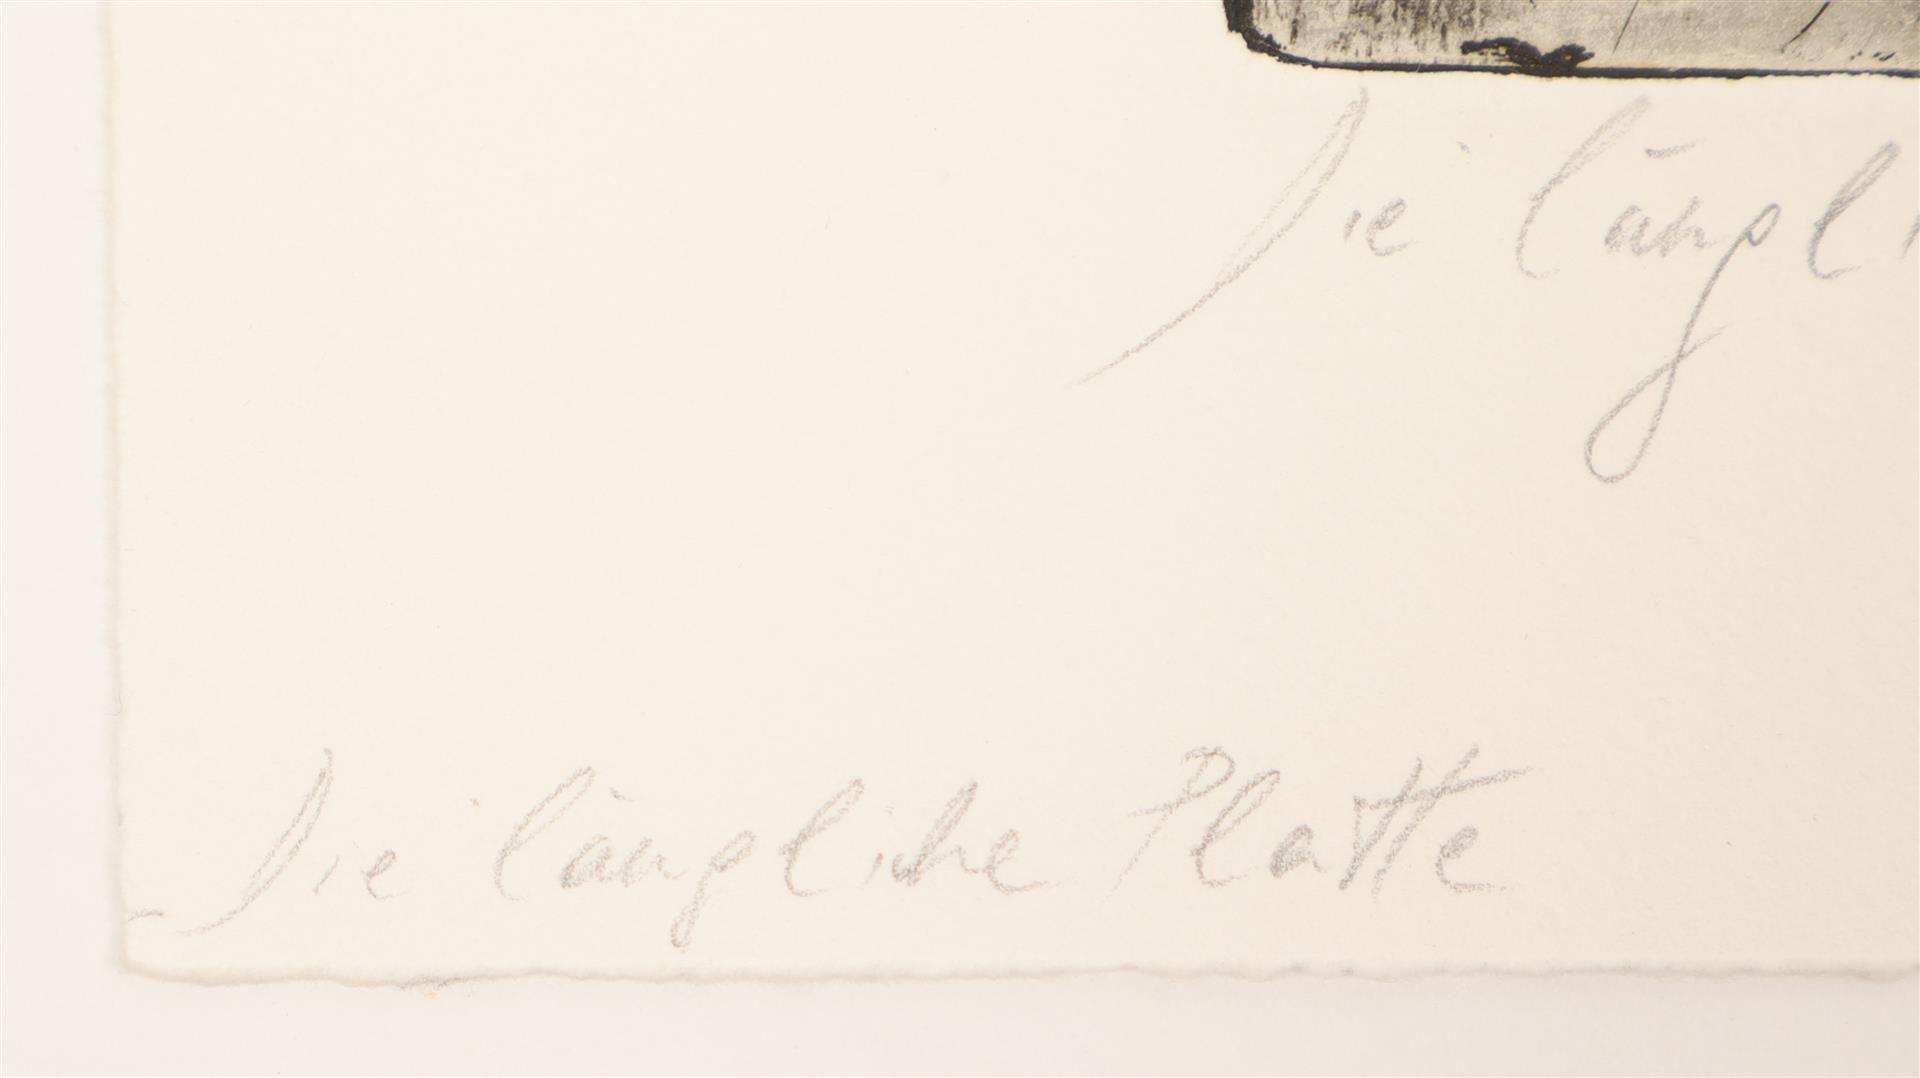 Die längl
Die längliche Platte